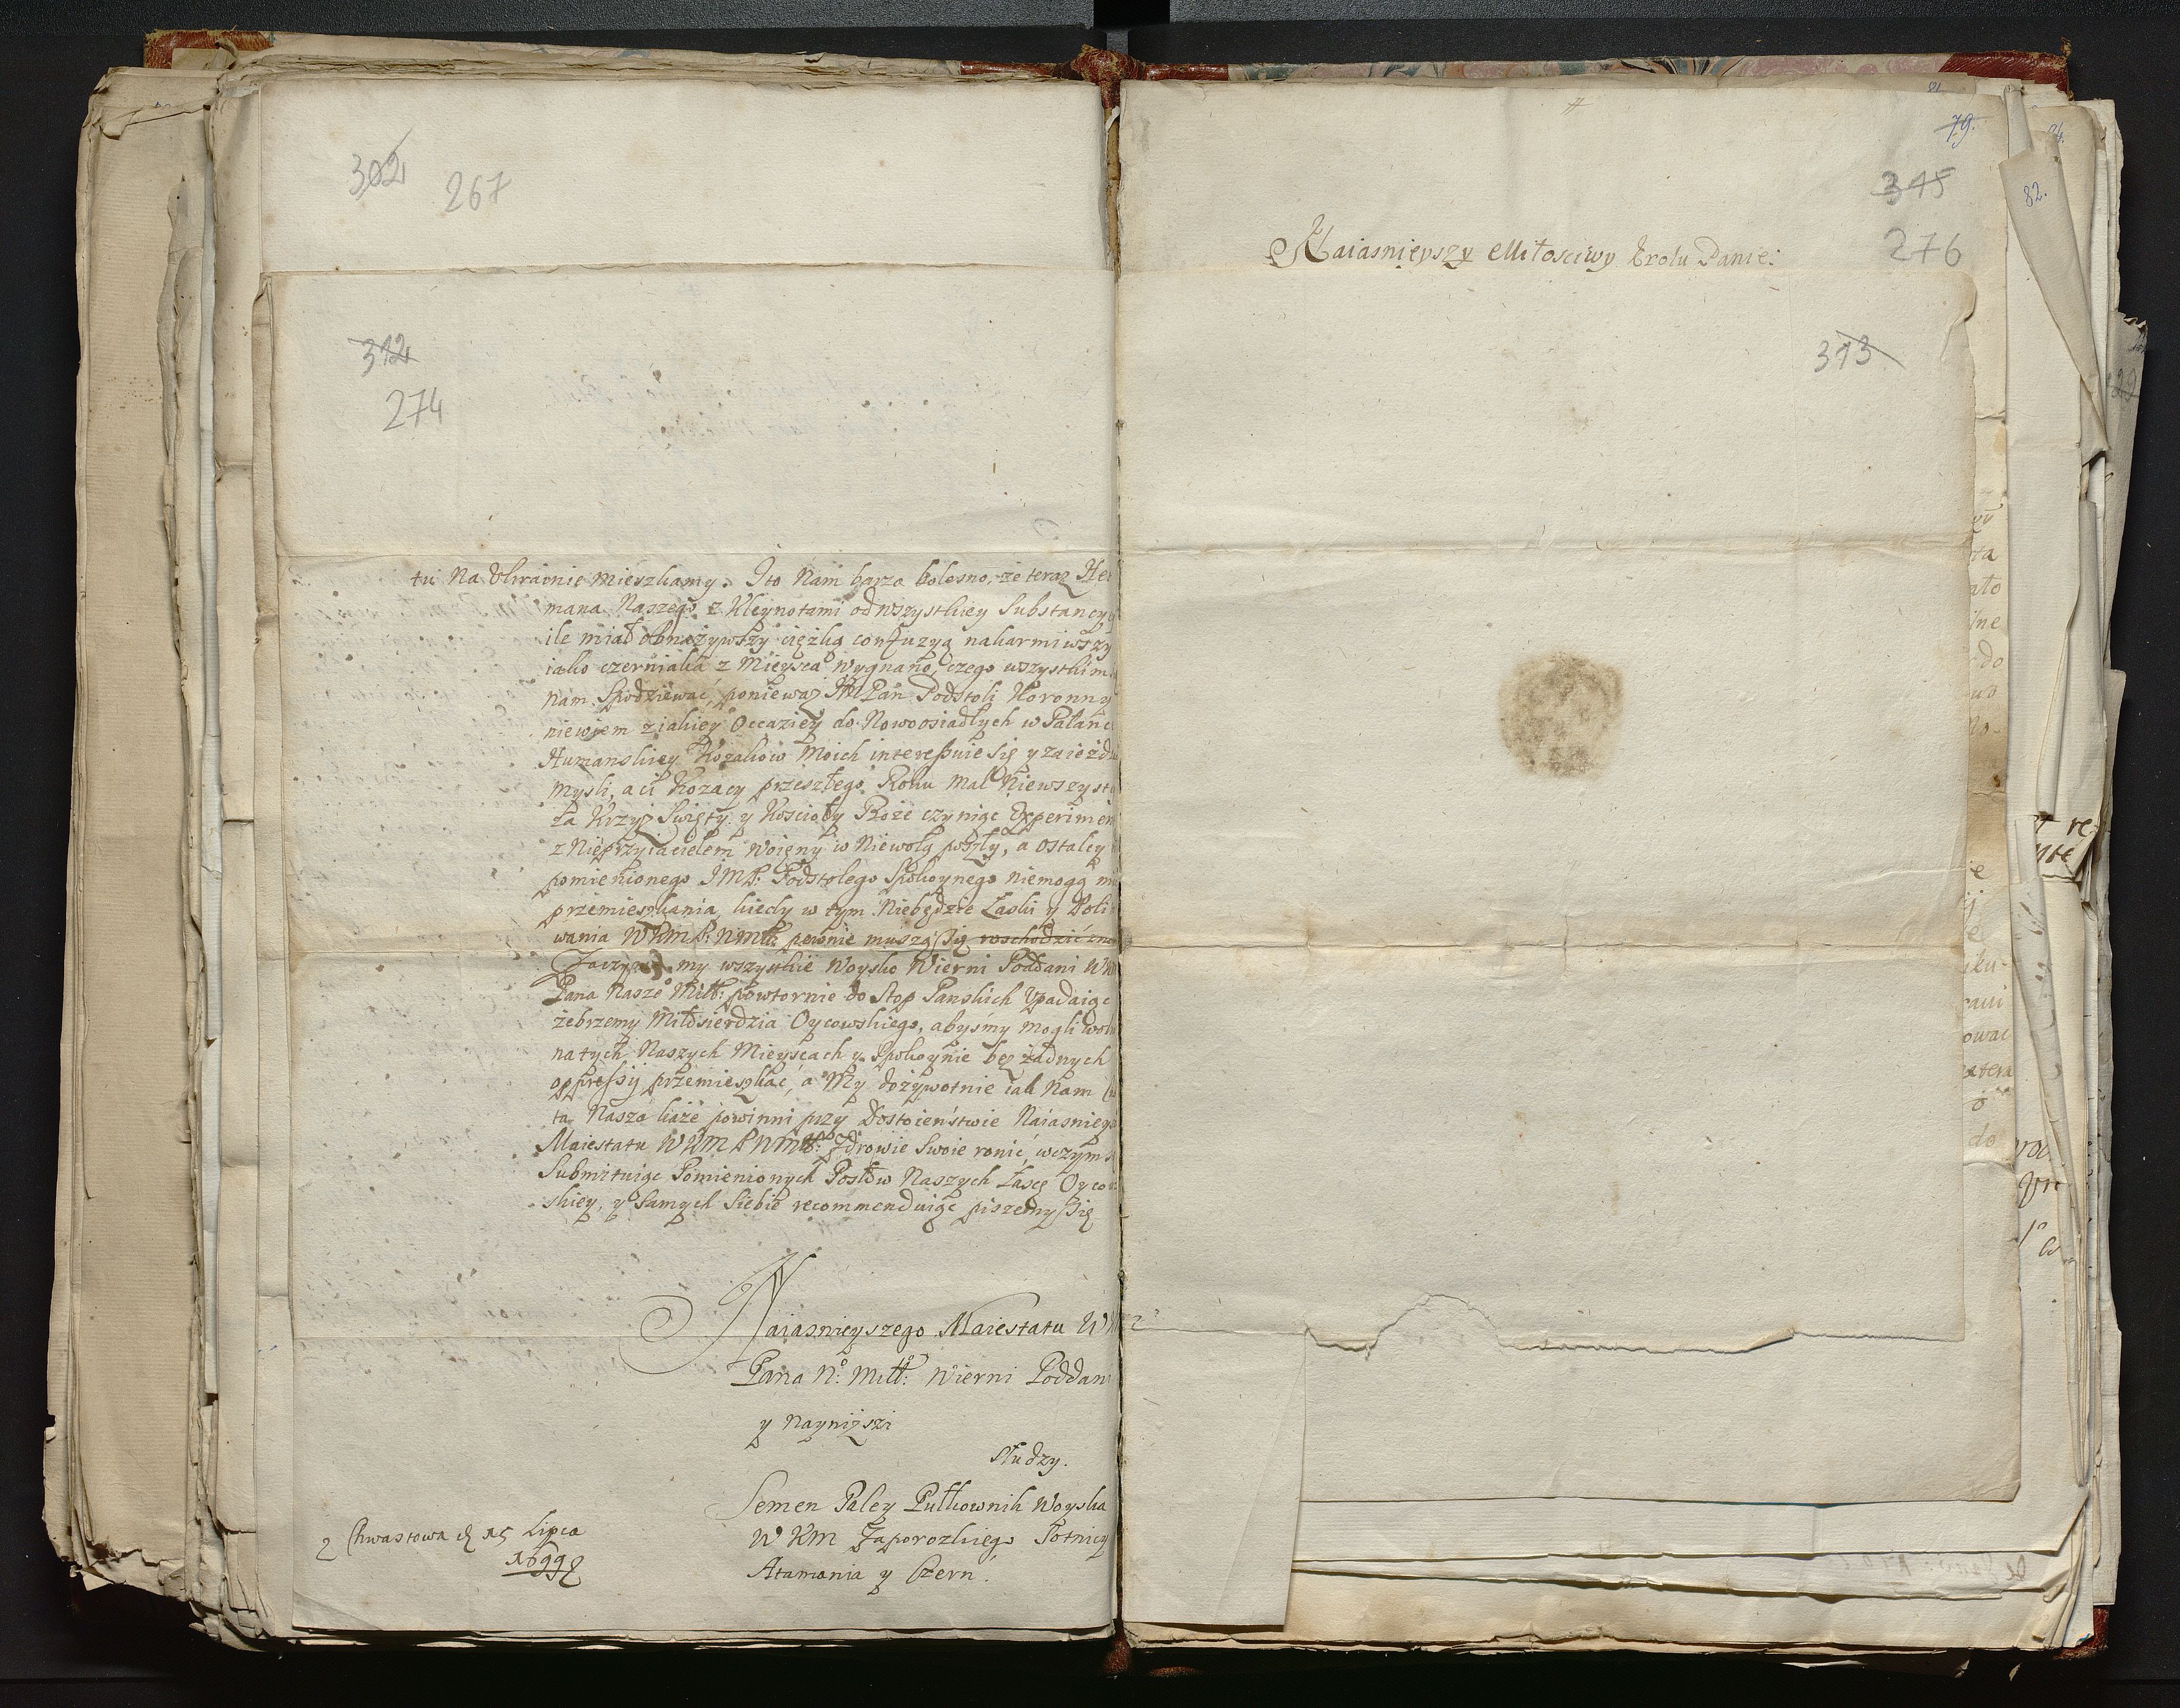 302 267
312
274
tu Na Ukrainie mieszkamy. I to Nam barzo bolesno, że teraz Het
mana Naszego z Kleynotami od wszystkiey Substancyi
ile miał obnażywszy ciężką confuzyą nakarmiwszy
iako czerniaka z Mieysca wygnano, czego wszystkim
nam Spodziewać, poniewaz JM Pan Podstoli Koronny
niewiem z iakiey Occaziey do Nowoosiadłych w Palanc
Humanskiey Kozakow Moich interessuie się y zaieżdża
mysli, a ci Kozacy przeszłego Roku mal Niewszyst
za Krzyż Swięty y Kościoły Boże czyniąc Experimen
z Nieprzyiacielem Woięny w Niewolą poszły, a ostalcy
pomienionego JMP: Podstolego Spokoynego niemogą mi
przemieszkania, kiedy w tym Niebędzie Łaski y Poli
wania WKM P: NMłł: pewnie muszą się roschodzić zno
Zaczym my wszystkie Woysko Wierni Poddani WK
Pana Nasze° Miłł: powtornie do Stop Panskich Upadaiąc
żebrzemy Miłosierdzia Oycowskiego, abyśmy mogli wol
na tych Naszych Mieyscach y Spokoynie bez żadnych
oppressij przemieszkać, a My dożywotnie iak Nam
ta Nasza każe powinni przy Dostoieństwie Naiasniey
Maiestatu WKM P NMłł: Zdrowie Swoie ronić, w czym
Submituiąc Pomienionych Posłow Naszych Łasce Oycow
skiey, y Samych Siebie recommenduiąc piszemy się
Naiasnieyszego Maiestatu WK
Pana N°: Miłł: Wierni Poddan
y Nayniższi
Słudzy.
Semen Paley Pułkownik Woyska
WKM Zaporozkiego Sotnicy
Atamania y Czern.
z Chwastowa d 15 Lipca
1699
79.
345
Naiasnieyszy Miłosciwy Krolu Panie:
276
313
82.